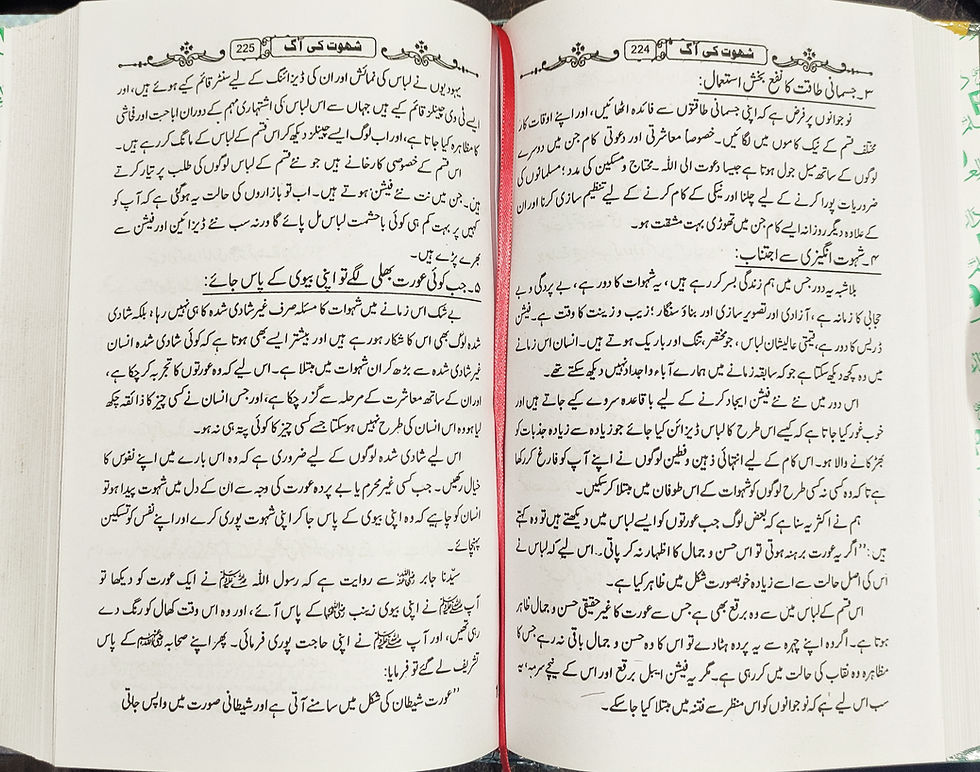 شھوت کی آگ
224
۳۔جسمانی طاقت کا نفع بخش استعمال:
نوجوانوں پر فرض ہے کہ اپنی جسمانی طاقتوں سے فائدہ اٹھائیں، اور اپنے اوقات کار
مختلف قسم کے نیک کاموں میں لگائیں۔خصوصاً معاشرتی اور دعوتی کام جن میں دوسرے
لوگوں کے ساتھ میل جول ہوتا ہے جیسا دعوت الی اللہ ۔محتاج و مسکین کی مدد ؛ مسلمانوں کی
ضروریات پورا کرنے کے لیے چلنا اور نیکی کے کام کرنے کے لیے تنظیم سازی کرنا اور ان
کے علاوہ دیگر روزانہ ایسے کام جن میں تھوڑی بہت مشقت ہو۔
۴۔شہوت انگیزی سے اجتناب:
بلاشبہ یہ دور جس میں ہم زندگی بسر کر رہے ہیں ، یہ شہوات کا دور ہے، بے پردگی و بے
حجابی کا زمانہ ہے ، آزادی اور تصویر سازی اور بناؤ سنگار ؛ زیب و زینت کا وقت ہے۔ فیشن
ڈریس کا دور ہے، قیمتی عالیشان لباس ، جو مختصر، تنگ اور باریک ہوتے ہیں۔ انسان اس زمانے
میں وہ کچھ دیکھ سکتا ہے جو کہ سابقہ زمانے میں ہمارے آباء و اجداد نہیں دیکھ سکتے تھے۔
اس دور میں نئے نئے فیشن ایجاد کرنے کے لیے باقاعدہ سروے کیے جاتے ہیں اور
خوب غور کیا جاتا ہے کہ کیسے اس طرح کا لباس ڈیزائن کیا جائے جو زیادہ سے زیادہ جذبات کو
بھڑکانے والا ہو۔ اس کام کے لیے انتہائی ذہین و فطین لوگوں نے اپنے آپ کو فارغ کر رکھا
ہے تا کہ وہ کسی نہ کسی طرح لوگوں کو شہوات کے اس طوفان میں مبتلا کر سکیں۔
ہم نے اکثر یہ سنا ہے کہ بعض لوگ جب عورتوں کو ایسے لباس میں دیکھتے ہیں تو وہ کہتے
ہیں : ’’اگر یہ عورت برہنہ ہوتی تو اس حسن و جمال کا اظہار نہ کر پاتی۔ اس لیے کہ لباس نے
اس کی اصل حالت سے اسے زیادہ خوبصورت شکل میں ظاہر کیا ہے۔
اس قسم کے لباس میں سے وہ برقع بھی ہے جس سے عورت کا غیر حقیقی حسن و جمال ظاہر
ہوتا ہے۔ اگر وہ اپنے چہرہ سے یہ پردہ ہٹا دے تو اس کا وہ حسن و جمال باقی نہ رہے جس کا
مظاہرہ وہ نقاب کی حالت میں کر رہی ہے۔ مگر یہ فیشن ایبل برقع اور اس کے نیچے سرمہ، یہ
سب اس لیے ہے کہ نوجوانوں کو اس منظر سے فتنہ میں مبتلا کیا جا سکے۔
شھوت کی آگ
225
یہودیوں نے لباس کی نمائش اور ان کی ڈیزائننگ کے لیے سنٹر قائم کیے ہوئے ہیں، اور
ایسے ٹی وی چینلز قائم کیے ہیں جہاں سے اس لباس کی اشتہاری مہم کے دوران اباحت اور فحاشی
کا مظاہرہ کیا جاتا ہے، اور اب لوگ ایسے چینلز دیکھ کر اس قسم کے لباس کے مانگ کر رہے ہیں۔
اس قسم کے خصوصی کارخانے ہیں جو نئے قسم کے لباس لوگوں کی طلب پر تیار کرتے
ہیں۔ جن میں نت نئے فیشن ہوتے ہیں۔ اب تو بازاروں کی حالت یہ ہو گئی ہے کہ آپ کو
کہیں پر بہت کم ہی کوئی باحشمت لباس مل پائے گا ورنہ سب نئے ڈیزائین اور فیشن سے
بھرے پڑے ہیں۔
۵۔جب کوئی عورت بھلی لگے تو اپنی بیوی کے پاس جائے:
بے شک اس زمانے میں شہوات کا مسئلہ صرف غیر شادی شدہ کا ہی نہیں رہا، بلکہ شادی
شدہ لوگ بھی اس کا شکار ہو رہے ہیں اور بیشتر ایسے بھی ہوتا ہے کہ کوئی شادی شدہ انسان
غیر شادی شدہ سے بڑھ کر ان شہوات میں مبتلا ہے۔ اس لیے کہ وہ عورتوں کا تجربہ کر چکا ہے،
اور ان کے ساتھ معاشرت کے مرحلہ سے گزر چکا ہے، اور جس انسان نے کسی چیز کا ذائقہ چکھ
لیا ہو وہ اس انسان کی طرح نہیں ہو سکتا جسے کسی چیز کا کوئی پتہ ہی نہ ہو۔
اس لیے شادی شدہ لوگوں کے لیے ضروری ہے کہ وہ اس بارے میں اپنے نفوس کا
خیال رکھیں۔ جب کسی غیر محرم یا بے پردہ عورت کی وجہ سے ان کے دل میں شہوت پیدا ہو تو
انسان کو چاہیے کہ وہ اپنی بیوی کے پاس جا کر اپنی شہوت پوری کرے اور اپنے نفس کو تسکین
پہنچائے۔
سیّدنا جابر رضی اللہ عنہ سے روایت ہے کہ رسول اللہ ﷺ نے ایک عورت کو دیکھا تو
آپ ﷺ نے اپنی بیوی زینب رضی اللہ عنہا کے پاس آئے، اور وہ اس وقت کھال کو رنگ دے
رہی تھیں، اور آپ ﷺ نے اپنی حاجت پوری فرمائی۔ پھر اپنے صحابہ رضی اللہ عنہم کے پاس
تشریف لے گئے تو فرمایا:
’’عورت شیطان کی شکل میں سامنے آتی ہے اور شیطانی صورت میں واپس جاتی